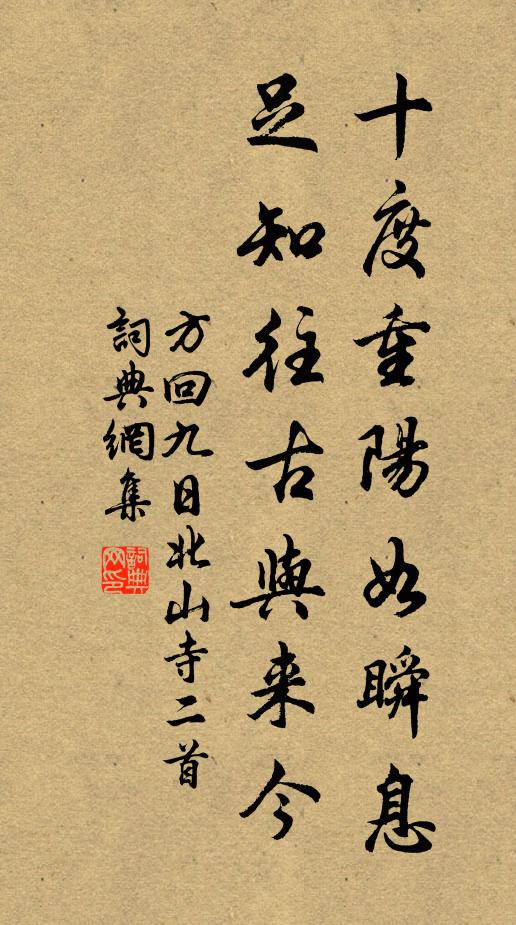 十度重陽如瞬息
足知往古與来今
方回九日北山寺二首
詞典網集
詞典網印